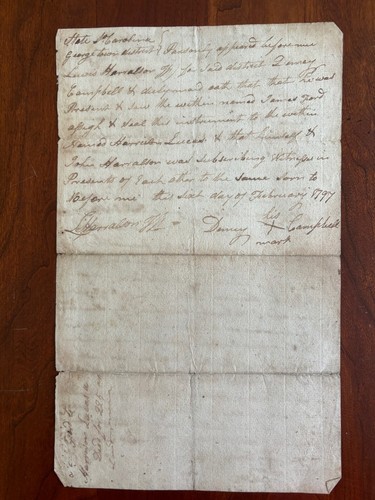 State So Carolina
George town district } Personly appeard before me
Lewis Harralson JP for Said district Dewey
Campbell & dulysword oath that that he was
Present & saw the within named James Ford
assign & Seal this instrument to the within
Named Harrison Lucas & that himself &
John Harralson was Subscribing Witness in
Presents of Each other to the Same Sorn to
Before me this Sixt day of February 1797
L Harralson JP
his
Dewey X Campbell
mark
Ford to
Harrison Lucas